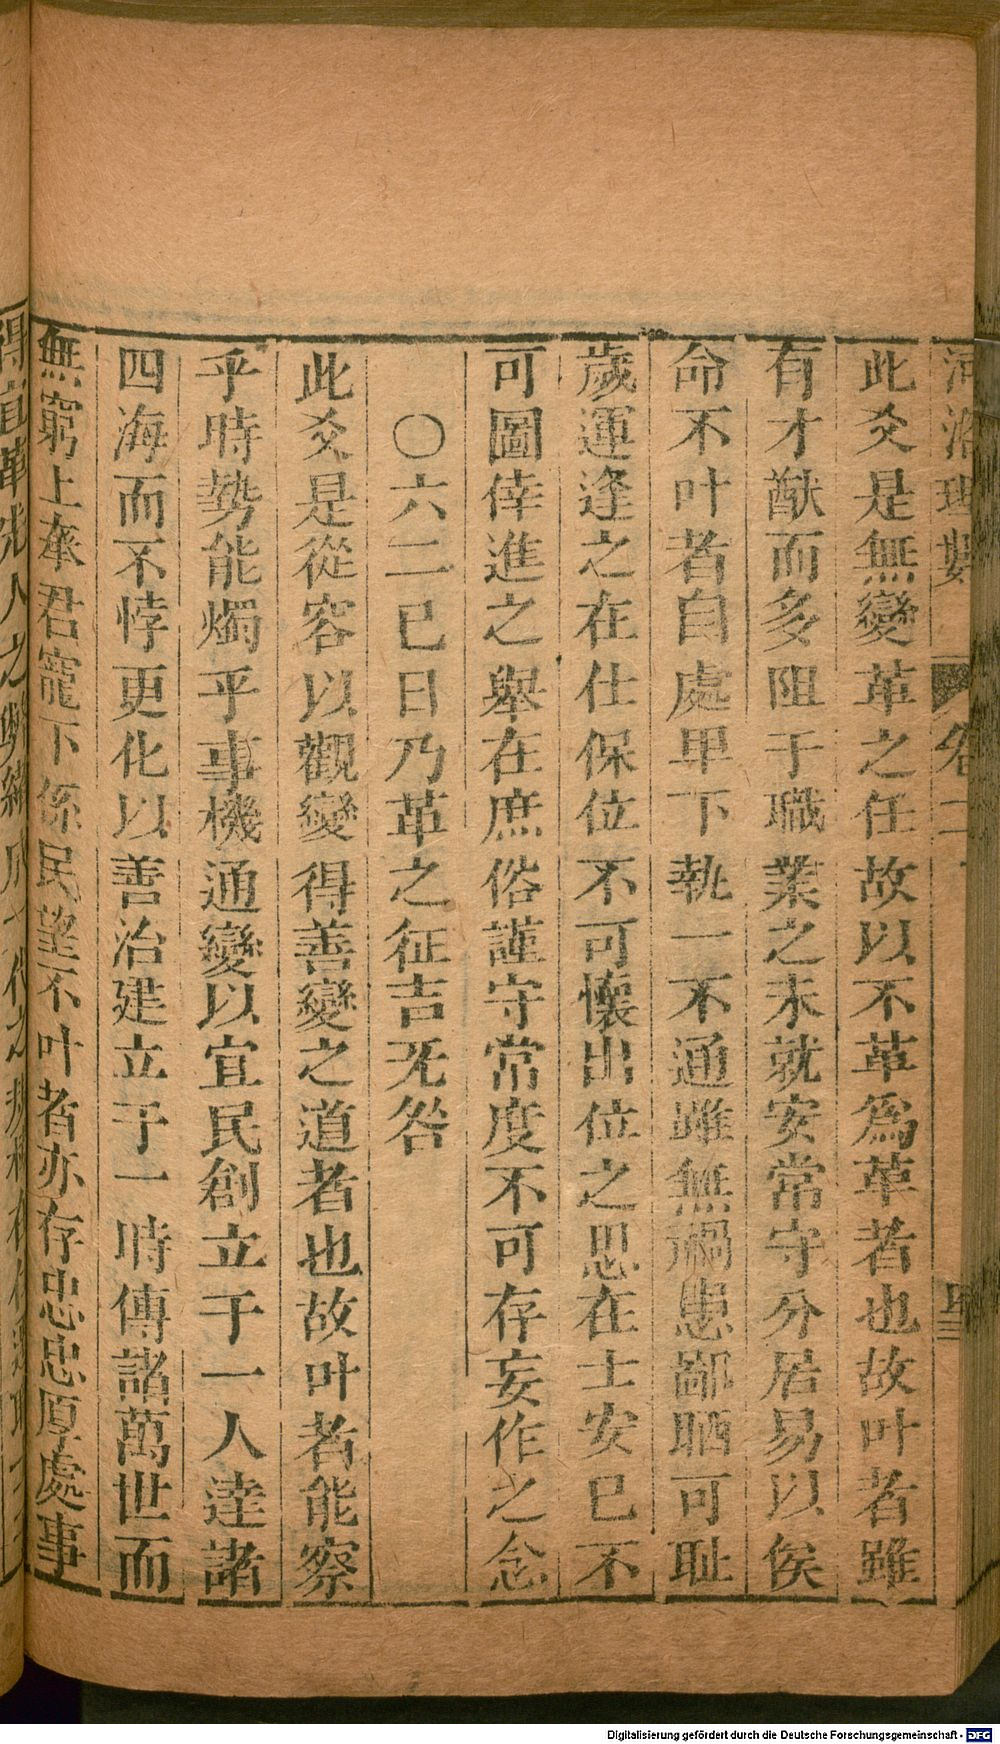 河洛理數 卷二
此爻是無變革之任故以不革爲革者也故叶者雖
有才猷而多阻于職業之未就安常守分居易以俟
命不叶者自處卑下執一不通雖無過患鄙陋可耻
歲運逢之在仕保位不可懷出位之思在士安已不
可圖倖進之舉在庶俗謹守常度不可存妄作之念
〇六二已日乃革之征吉旡咎
此爻是從容以觀變得善變之道者也故叶者能察
乎時勢能燭乎事機通變以宜民創立于一人達諸
四海而不悖更化以善治建立于一時傳諸萬世而
無窮上奉君寵下係民望不叶者亦存忠忠厚處事
Digitalisierung gefördert durch die Deutsche Forschungsgemeinschaft - DFG